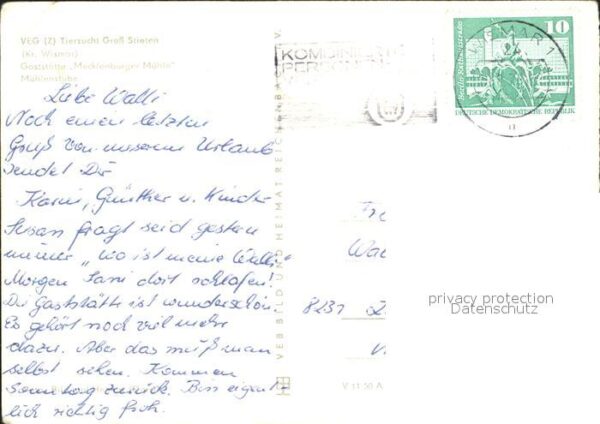 VEG (Z) Tierzucht Groß Stieten
(Kr. Wismar)
Gaststätte "Mecklenburger Mühle"
Mühlenstube
Liebe Walli
Noch einen letzten
Gruß von unserem Urlaub
sendet Dir
Karin, Günther u. Kinder
Susan fragt seid gestern
immer „wo ist meine Walli"
Morgen Sani dort schlafen!
Die Gaststätte ist wunderschön.
Es gehört noch viel mehr
dazu. Aber das muß man
selbst sehen. Kommen
Sonntag zurück. Bin eigent-
lich richtig froh.
VEB BILD U. HEIMAT REICHENBACH I. V.
V 11 50 A
KOMBINIERTE
PERSONEN
WISMAR 1
10
DEUTSCHE DEMOKRATISCHE REPUBLIK
Fr
Wa
8231
privacy protection
Datenschutz